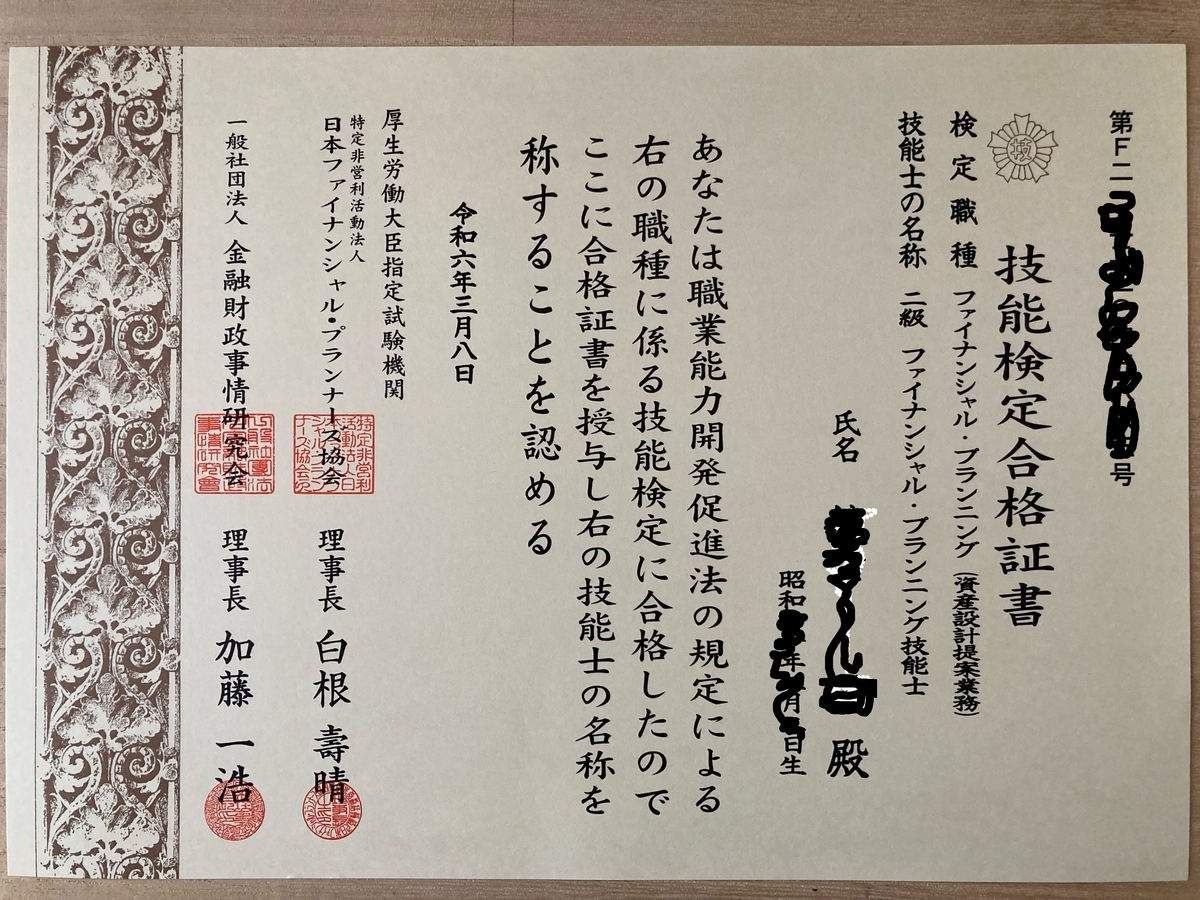 第F二号
技能検定合格証書
検定職種 ファイナンシャル・プランニング(資産設計提案業務)
技能士の名称 二級 ファイナンシャル・プランニング技能士
氏名 殿
昭和年月日生
あなたは職業能力開発促進法の規定による
右の職種に係る技能検定に合格したので
ここに合格証書を授与し右の技能士の名称を
称することを認める
令和六年三月八日
厚生労働大臣指定試験機関
特定非営利活動法人
日本ファイナンシャル・プランナーズ協会 理事長 白根 壽晴
一般社団法人 金融財政事情研究会 理事長 加藤 一浩